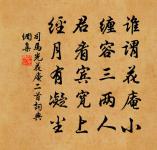 誰謂花庵小
纔容三兩人
君看賓席上
經月有凝尘
司馬光花庵二首詞典
網集